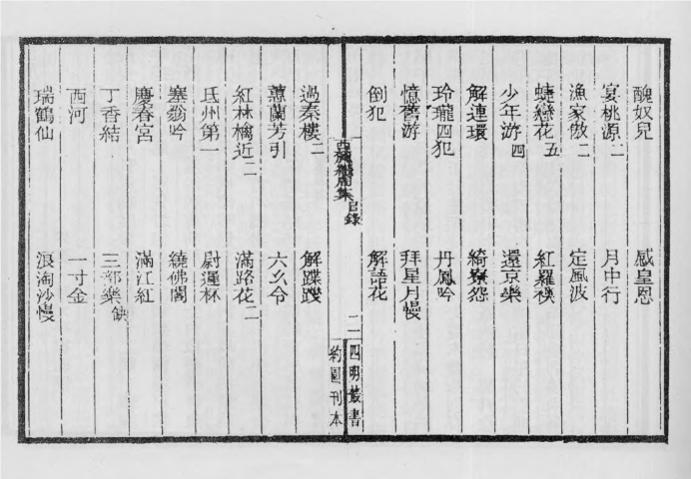 醜奴兒 感皇恩
宴桃源二 月中行
漁家傲二 定風波
蜨戀花五 紅羅襖
少年游四 還京樂
解連環 綺寮怨
玲瓏四犯 丹鳳吟
憶舊游 拜星月慢
倒犯 解語花
西麓繼周集 目錄 二 四明叢書
約園刊本
過秦樓二 解蹀躞
蕙蘭芳引 六么令
紅林檎近二 滿路花二
氐州第一 尉遲杯
塞翁吟 繞佛閣
慶春宮 滿江紅
丁香結 三部樂缺
西河 一寸金
瑞鶴仙 浪淘沙慢